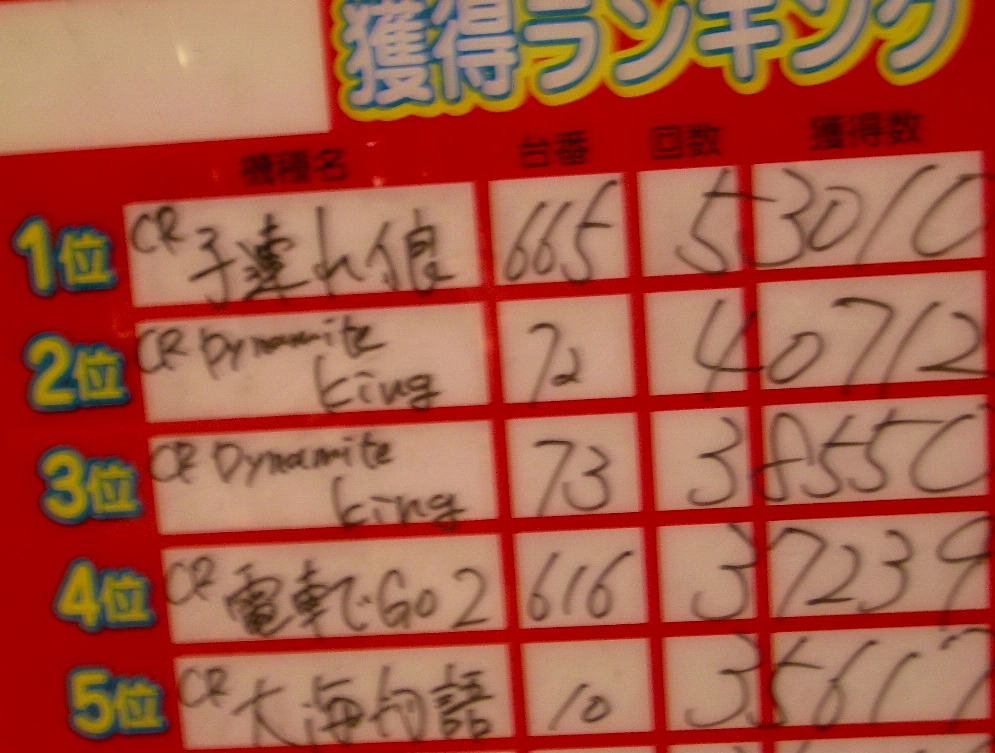 獲得ランキング
機種名 台番 回数 獲得数
1位 CR子連れ狼 665 53010
2位 CR Dynamite
king 72 40712
3位 CR Dynamite
king 73 38550
4位 CR電車でGo2 616 37239
5位 CR大海物語 10 35617